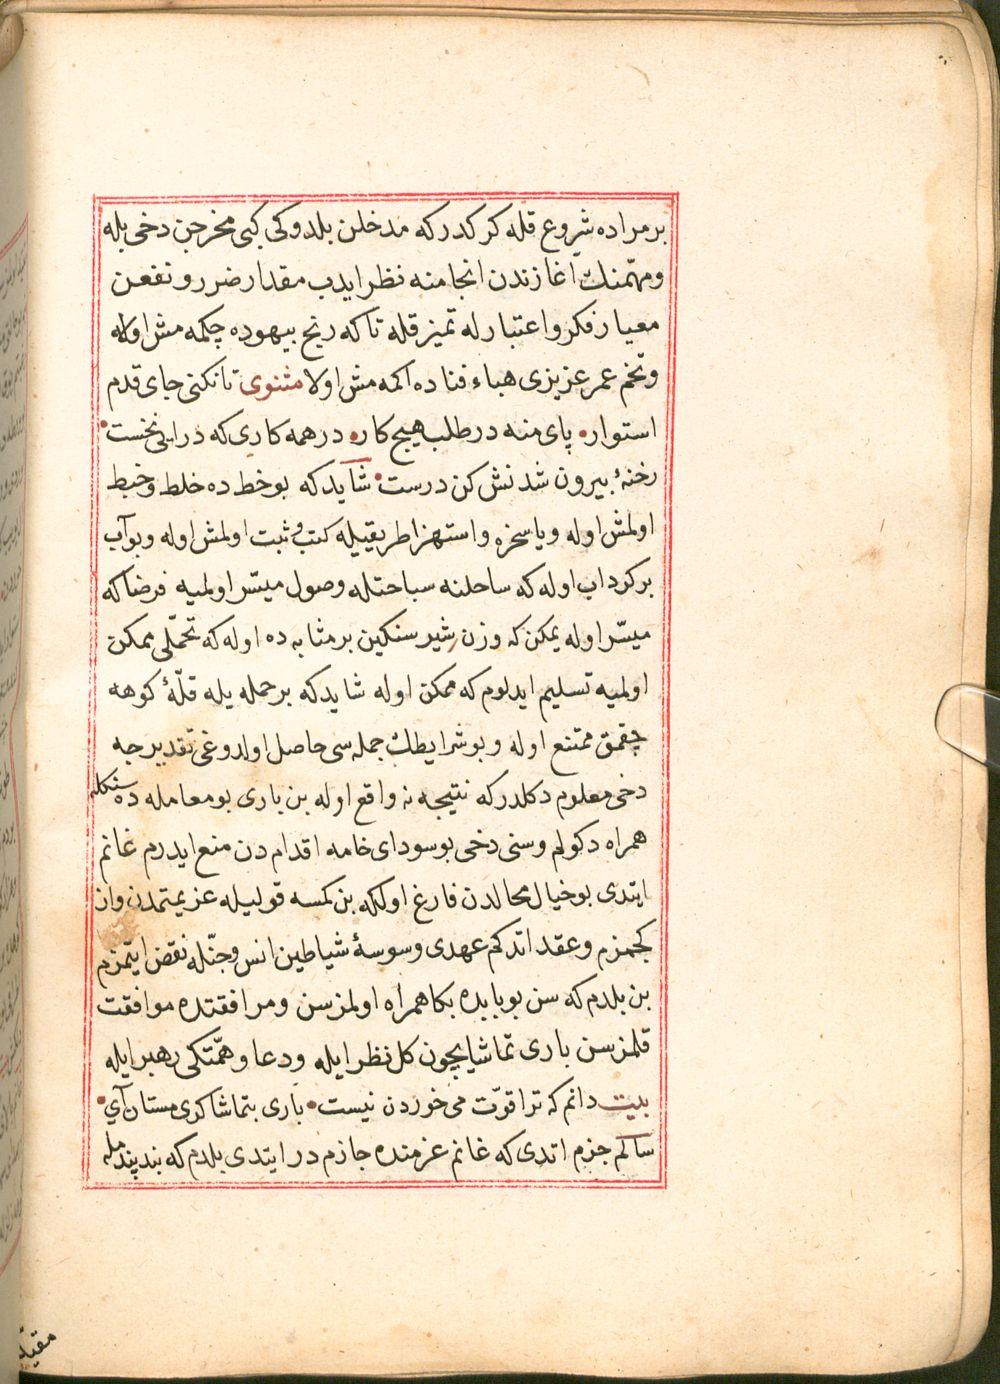 بر مراده شروع قله كركدركه مدخلن بلدوكی كبی مخرجن دخی بله
ومهمنك آغازندن انجامنه نظر ایدب مقدار ضرر ونفعن
معیار فكر واعتبارله تمیز قله تاكه رنج بیهوده چكمه مش اولاه
وتخم عمر عزیزی هباء فناده اكمه مش اولا مثنوی تا نكنی جای قدم
استوار• پای منه در طلب هیچ كار• در همه كاری كه درایی نخست•
رخنۀ بیرون شدنش كن درست• شایدكه بو خطده خلط وخبط
اولمش اوله ویا سخره واستهزا طریقیله كتب و ثبت اولمش اوله وبو آب
بر كرداب اوله كه ساحلنه سباحتله وصول میسّر اولمیه فرضا كه
میسّر اوله یمكن كه وزن شیر سنكین بر مثابه ده اوله كه تحمّلی ممكن
اولمیه تسلیم ایدلوم كه ممكن اوله شایدكه بر حمله یله قلّۀ كوهه
چقمق ممتنع اوله وبو شرایطك جمله سی حاصل اولدوغی تقدیرجه
دخی معلوم دكلدركه نتیجه نه واقع اوله بن باری بو معامله ده سنكله
همراه دكولم وسنی دخی بو سودای خامه اقدام دن منع ایدرم غانم
ایتدی بو خیال محالدن فارغ اولكله بن كمسه قولیله عزیمتمدن واز
كچمزم وعقد اتدكم عهدی وسوسۀ شیاطین انس وجنّله نقض ایتمزم
بن بلدم كه سن بو بابده بكا همراه اولمزسن ومرافقتده موافقت
قلمزسن باری تماشا ایچون كل نظر ایله ودعا وهمّتكی رهبر ایله
بیت دانم كه ترا قوّت می خوردن نیست• باری بتماشاكری مستان آی•
سالم جزم اتدی كه غانم عزمنده جازم در ایتدی بلدم كه بند پندمله
مقید